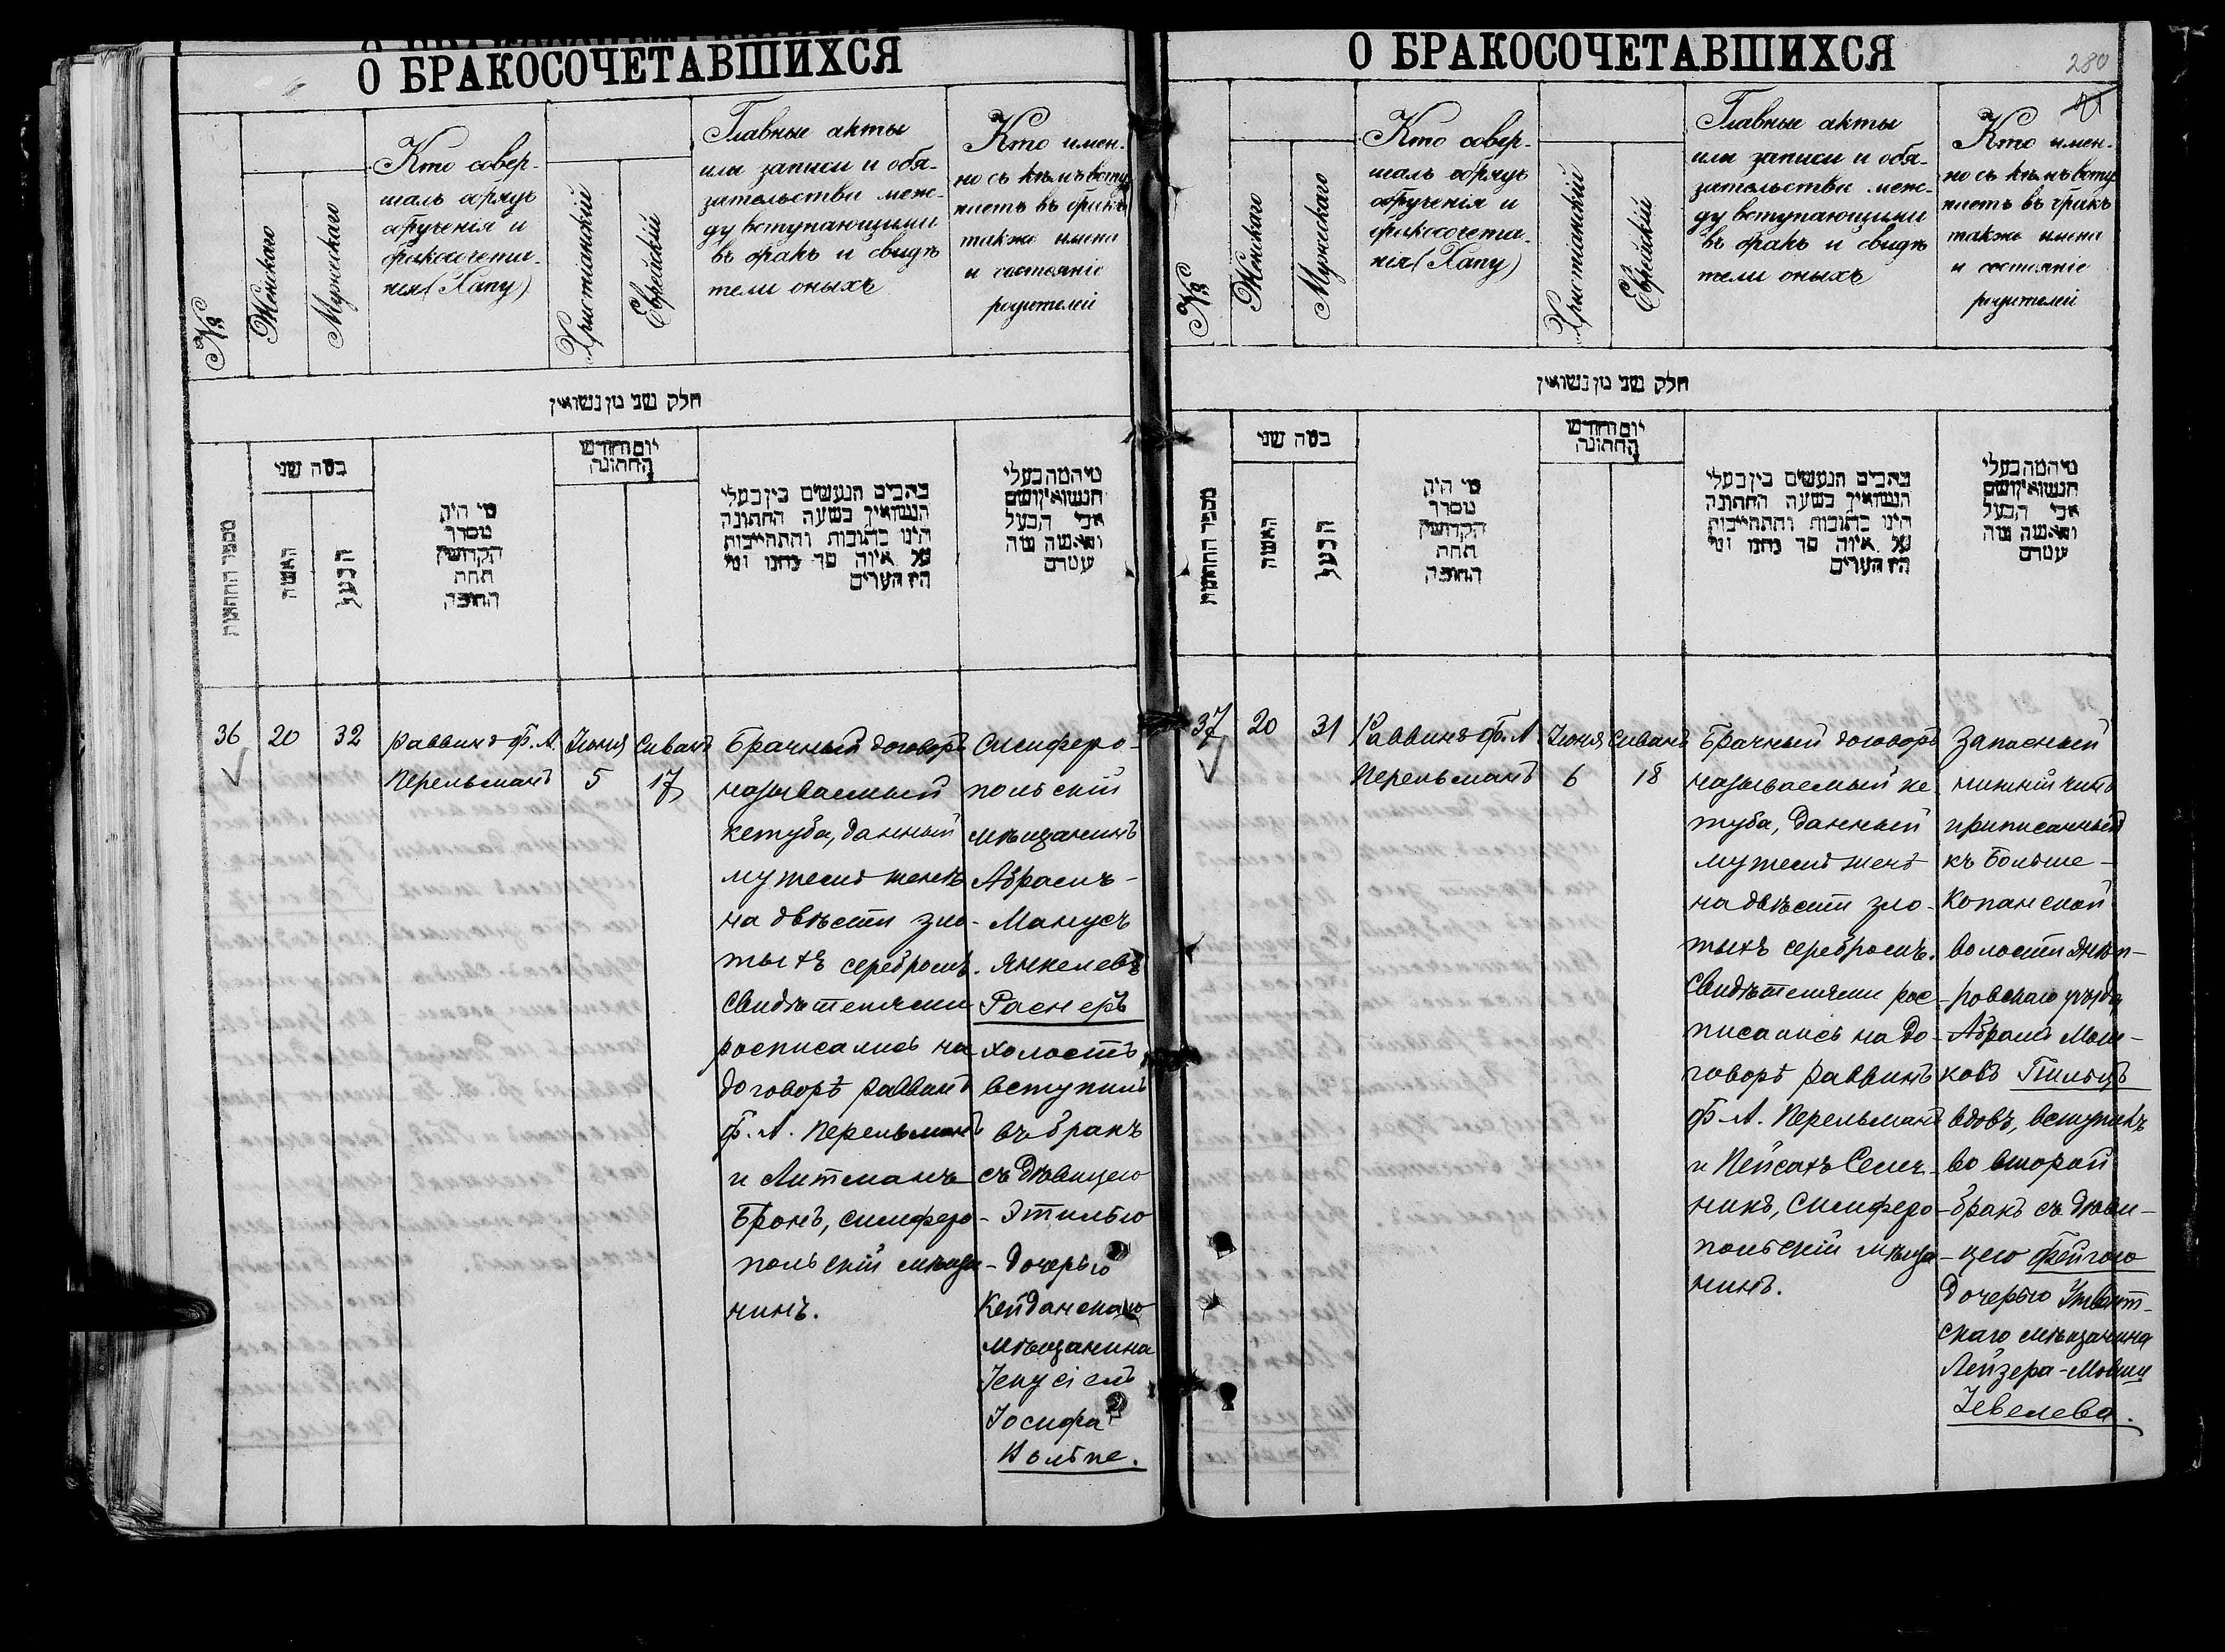 О БРАКОСОЧЕТАВШИХСЯ
№
Женскаго
Мужескаго
Кто совер-
шалъ обрядъ
обрученія и
бракосочета-
нія (Хапу)
Христіанскій
Еврейскій
Главные акты
или записи и обя-
зательства меж-
ду вступающими
въ бракъ и свидѣ
тели оныхъ
Кто имен-
но съ кѣмъ всту
паетъ въ бракъ
также имена
и состояніе
родителей
חלק שני מן נשואין
מספר החתונות
כמה שני
האשה
הבעל
מי היה
מסדר
הקדושין
תחת
החופה
יום וחודש
החתונה
כתבים הנעשים בין בעלי
הנשואין בשעה החתונה
היינו כתובות והתחייבות
על איזה סך נתנו ומי
היו העדים
מי המה בעלי
הנשואין ושם
אבי הבעל
והאשה ומה
עטרם
36
20
32
Раввинъ Ф. А.
Перельманъ
Іюня
5
Сиванъ
17
Брачный договоръ
называемый
кетуба, данный
мужемъ женѣ
на двѣсти зло-
тыхъ серебромъ.
Свидѣтелями
росписались на
договорѣ раввинъ
Ф. А. Перельманъ
и Литманъ
Бронъ, симферо-
польскій мѣща-
нинъ.
Симферо-
польскій
мѣщанинъ
Абрамъ-
Манусъ
Янкелевъ
Раснеръ
холостъ
вступилъ
въ бракъ
съ дѣвицею
Этилью
дочерью
Кейданскаго
мѣщанина
Іекусіелъ
Іосифа
Кольпе.
О БРАКОСОЧЕТАВШИХСЯ
280
№
Женскаго
Мужескаго
Кто совер-
шалъ обрядъ
обрученія и
бракосочета-
нія (Хапу)
Христіанскій
Еврейскій
Главные акты
или записи и обя-
зательства меж-
ду вступающими
въ бракъ и свидѣ
тели оныхъ
Кто имен-
но съ кѣмъ всту
паетъ въ бракъ
также имена
и состояніе
родителей
חלק שני מן נשואין
מספר החתונות
כמה שני
האשה
הבעל
מי היה
מסדר
הקדושין
תחת
החופה
יום וחודש
החתונה
כתבים הנעשים בין בעלי
הנשואין בשעה החתונה
היינו כתובות והתחייבות
על איזה סך נתנו ומי
היו העדים
מי המה בעלי
הנשואין ושם
אבי הבעל
והאשה ומה
עטרם
37
20
31
Раввинъ Ф. А.
Перельманъ
Іюня
6
Сиванъ
18
Брачный договоръ
называемый ке-
туба, данный
мужемъ женѣ
на двѣсти зло-
тыхъ серебромъ.
Свидѣтелями рос-
писались на до-
говорѣ раввинъ
Ф. А. Перельманъ
и Пейсахъ Семе-
никъ, симферо-
польскій мѣща-
нинъ.
Запасный
нижній чинъ
приписанный
къ Больше-
Копанской
волости Днѣп-
ровскаго уѣзда
Абрамъ Мош-
ковъ Гильцъ
вдовъ, вступилъ
во второй
бракъ съ дѣви-
цею Фейгою
дочерью
скаго мѣщанина
Лейзера-Мовши
Іевелева.